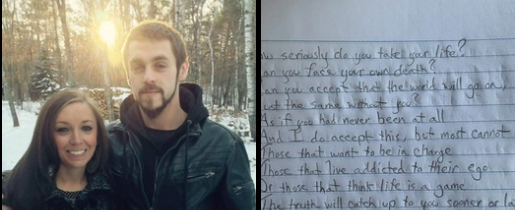 seriously do you take your life?
you face your own death?
you accept that the world will go on,
the same without you?
As if you had never been at all
And I do accept this, but most cannot
Those that want to be in charge
Those that live addicted to their ego
Or those that think life is a game
The truth will catch up to you sooner or